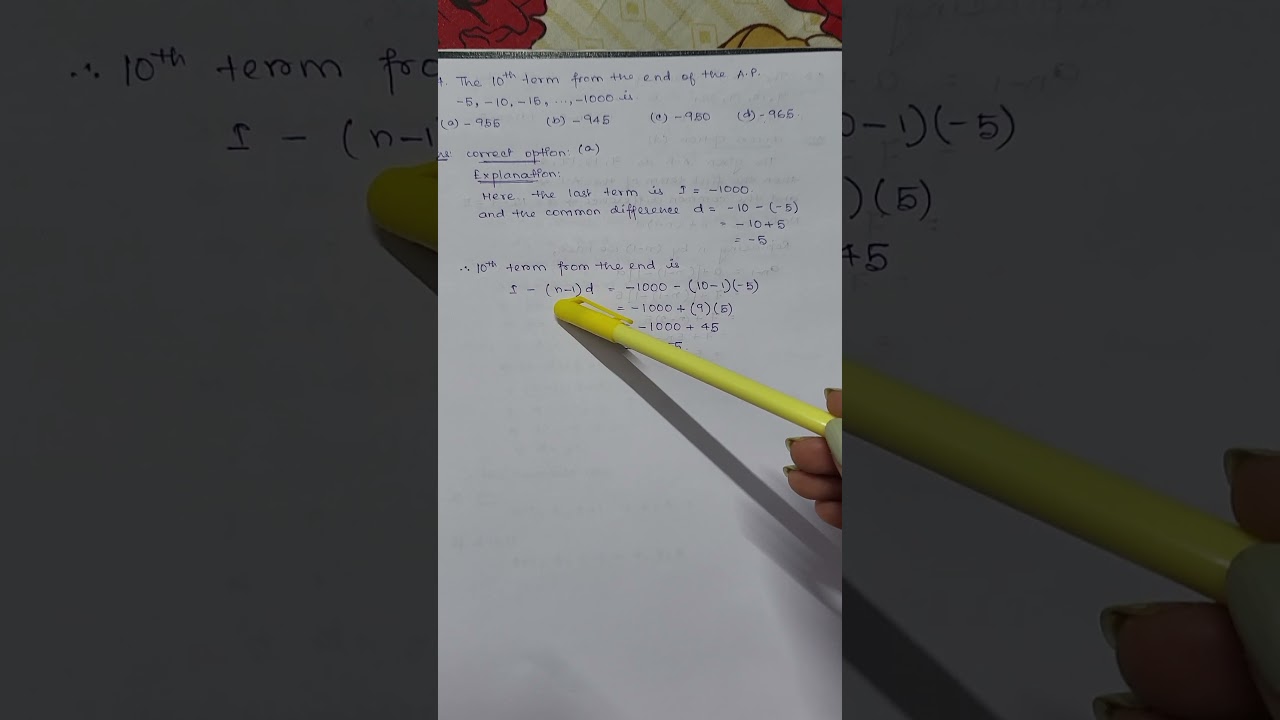 The 10th term from the end of the A.P.
-5, -10, -15, ..., -1000 is
(a) -955 (b) -945 (c) -950 (d) -965.
correct option: (a)
Explanation:
Here the last term is l = -1000.
and the common difference d = -10 - (-5)
= -10 + 5
= -5
∴ 10th term from the end is
l - (n-1)d = -1000 - (10-1)(-5)
= -1000 + (9)(5)
= -1000 + 45